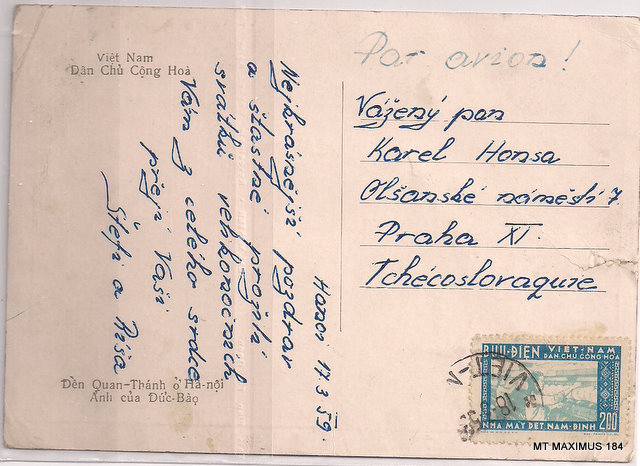 Việt Nam
Dân Chủ Cộng Hoà
Hanoi 17.3.59.
Nejkrásnější pozdrav
a šťastné prožití
svátků velikonočních
Vám z celého srdce
přejí Vaši
Štefi a
Đền Quan-Thánh ở Hà-nội
Ảnh của Đức-Bảo
Par avion!
Vážený pan
Karel Honsa
Olšanské náměstí 7
Praha XI.
Tchécoslovaquie
BƯU-ĐIỆN VIỆT-NAM
DÂN CHỦ CỘNG HÒA
NHÀ MÁY DỆT NAM-ĐỊNH
200
VIET-N
MT MAXIMUS 184